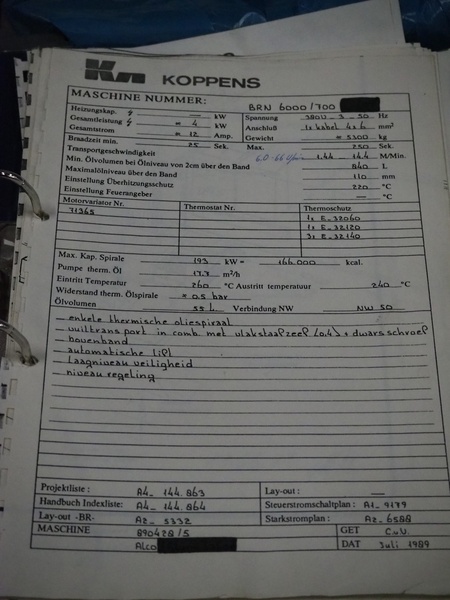 KOPPENS
MASCHINE NUMMER: BRN 6000/700
Heizungskap. — kW Spannung 380V - 3 - 50 Hz
Gesamtleistung ≈ 4 kW Anschluß 1x kabel 4x6 mm²
Gesamtstrom ≈ 12 Amp. Gewicht ≈ 5300 kg
Braadzeit min. 25 Sek. Max. 250 Sek.
Transportgeschwindigkeit 1.44 - 14.4 M/Min.
Min. Ölvolumen bei Ölniveau von 2cm über das Band 840 L
Maximalölniveau über das Band 110 mm
Einstellung Überhitzungsschutz 220 °C
Einstellung Feuerangeber — °C
Motorvariator Nr. Thermostat Nr. Thermoschutz
71365 1x E-32060
1x E-32120
3x E-32140
Max. Kap. Spirale 193 kW = 166.000 kcal.
Pumpe therm. Öl 17.7 m³/h
Eintritt Temperatur 260 °C Austritt temperatuur 240 °C
Widerstand therm. Ölspirale ≈ 0.5 bar
Ölvolumen 55 L Verbindung NW NW 50
— enkele thermische oliespiraal
— vuiltransport in comb. met vlakstaafzeef (0.4) + dwarsschroef
— bovenband
— automatische lift
— laagniveau veiligheid
— niveau regeling
Projektliste : A4-144.863 Lay-out : —
Handbuch Indexliste: A4-144.864 Steuerstromschaltplan : A1-9179
Lay-out -BR- A2-5332 Starkstromplan : A2-6588
MASCHINE 890428/5 GET C.v.V.
Alco DAT Juli 1989